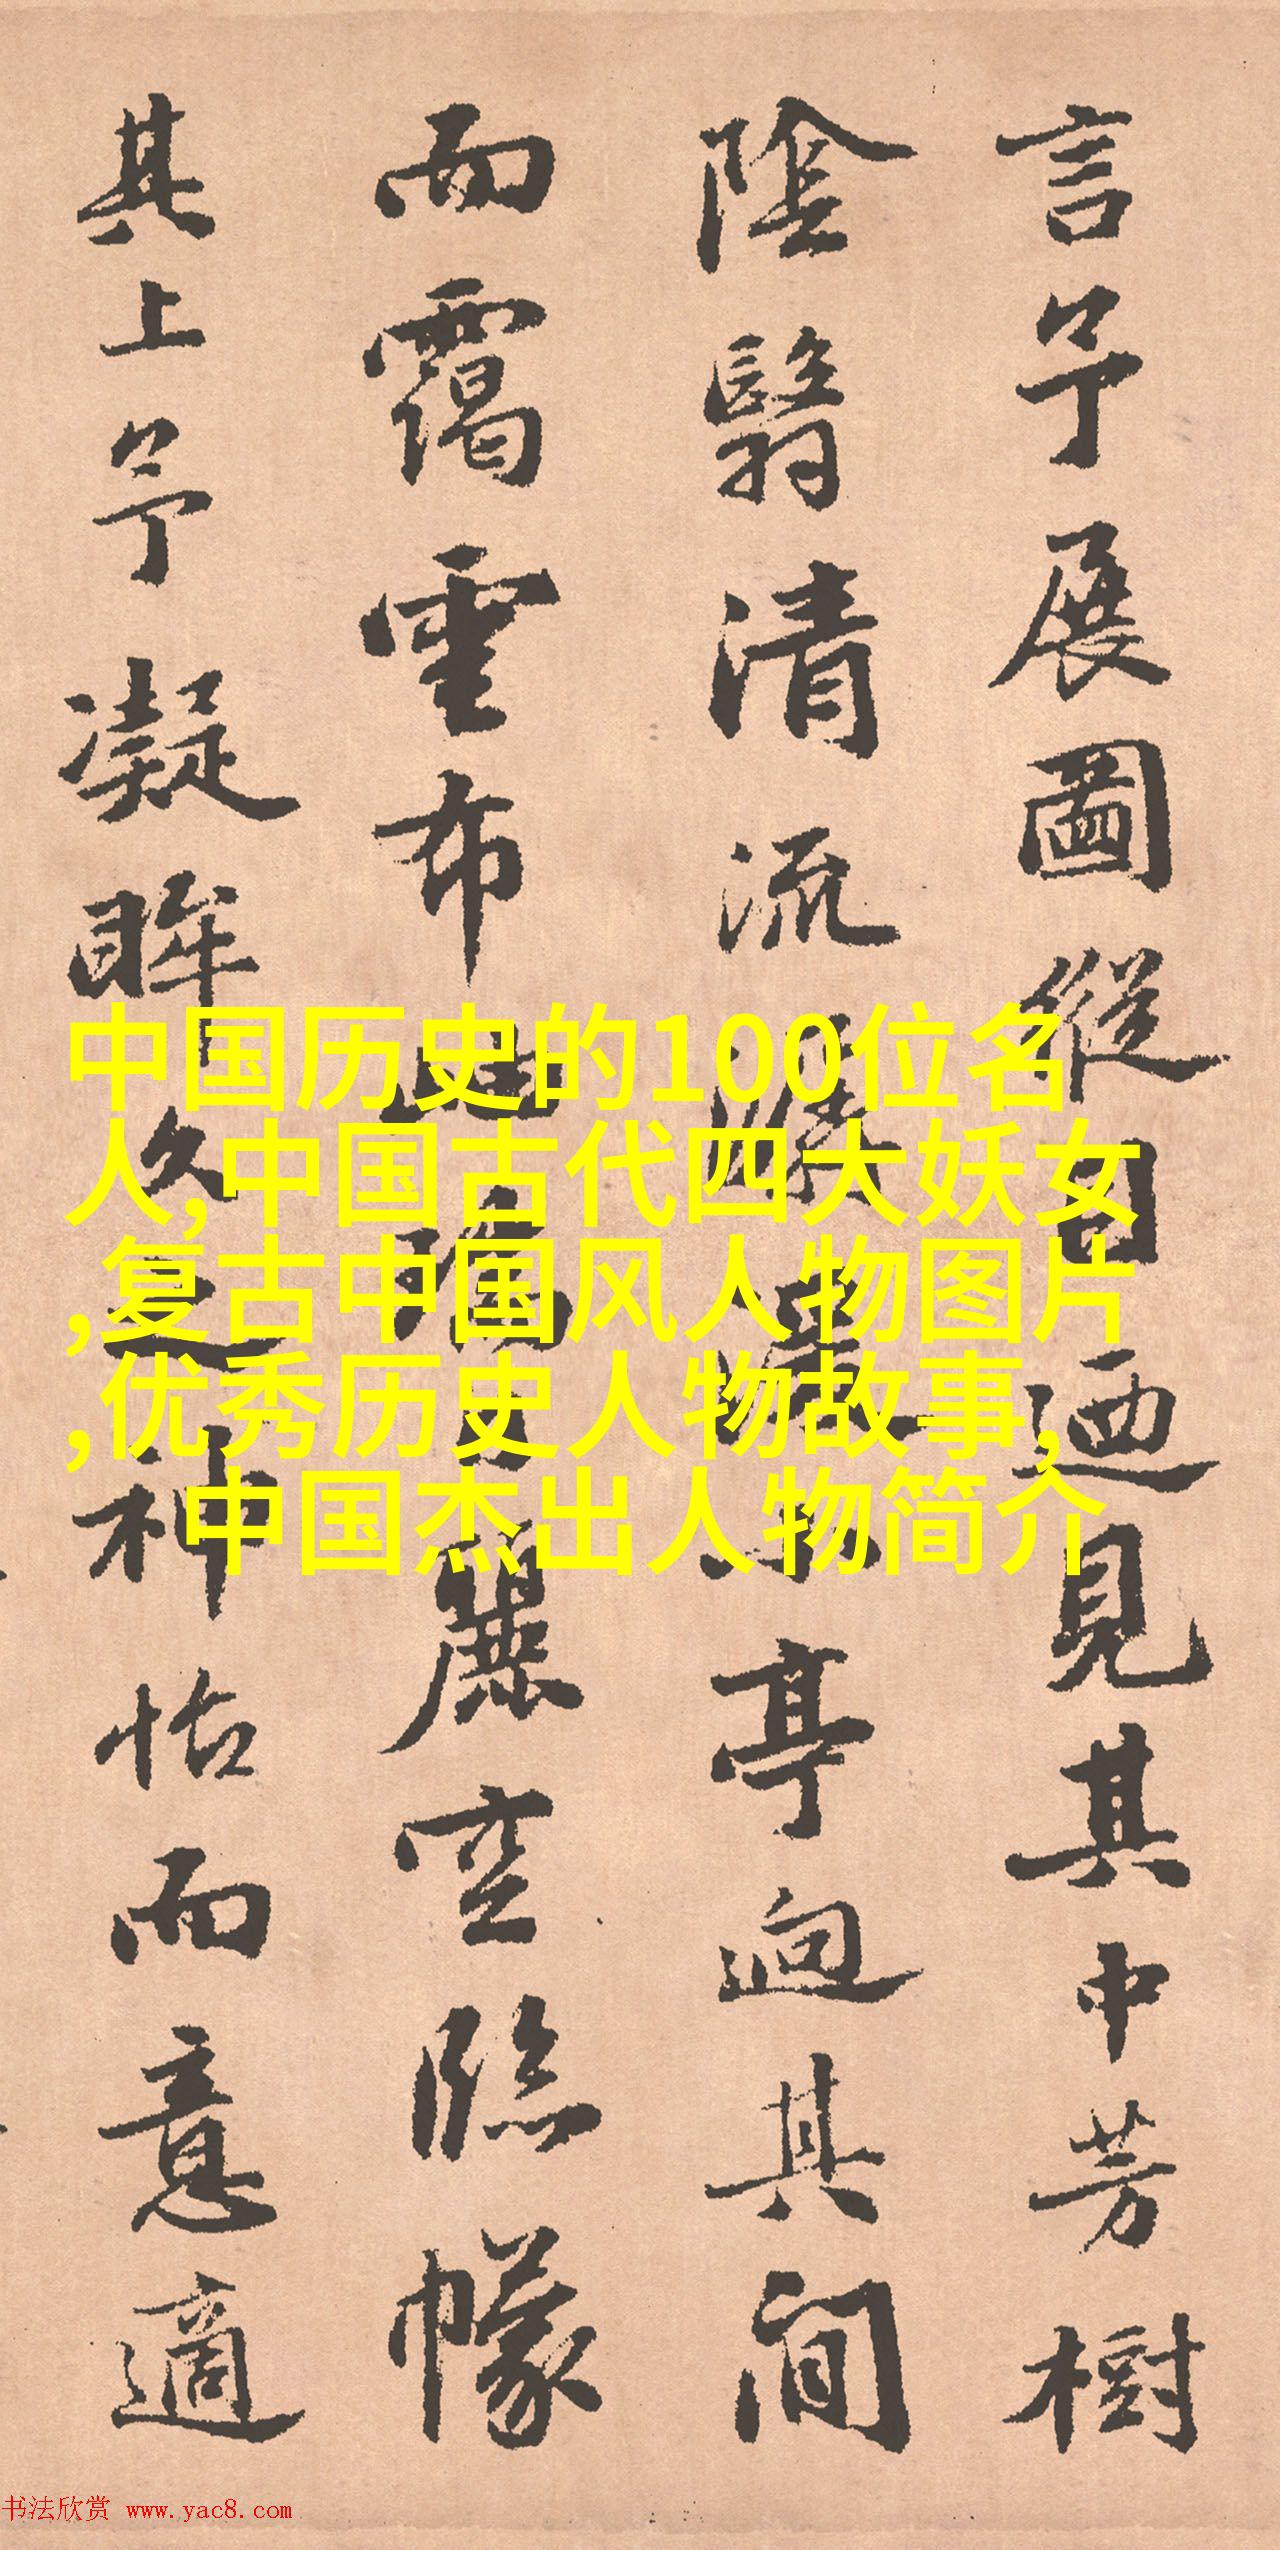 言予展圖縱目迺見其中芳樹
陰翳清流
亭迴其間
而靄雲布
麗空臨幪
其上予凝眸久之神怡而意適
中国历史的100位名
人,中国古代四大妖女
,复古中国风人物图片
,优秀历史人物故事,
中国杰出人物简介
书法欣赏 www.yac8.com